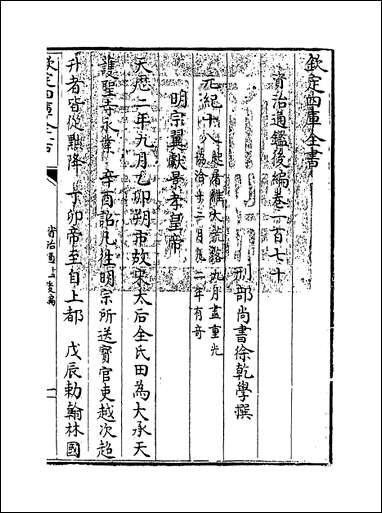 欽定四庫全書
資治通鑑後編卷一百七十
刑部尚書徐乾學撰
元紀十八 起屠維大荒落九月盡重光
協洽十二月凡二年有奇
明宗翼獻景孝皇帝
天厯二年九月乙卯朔市故宋太后全氏田為大承天
護聖寺永業 辛酉詔凡徃明宗所送寳官吏越次超
升者皆從黜降 丁卯帝至自上都 戊辰勅翰林國
欽定四庫全書
資治通鑑後編
一